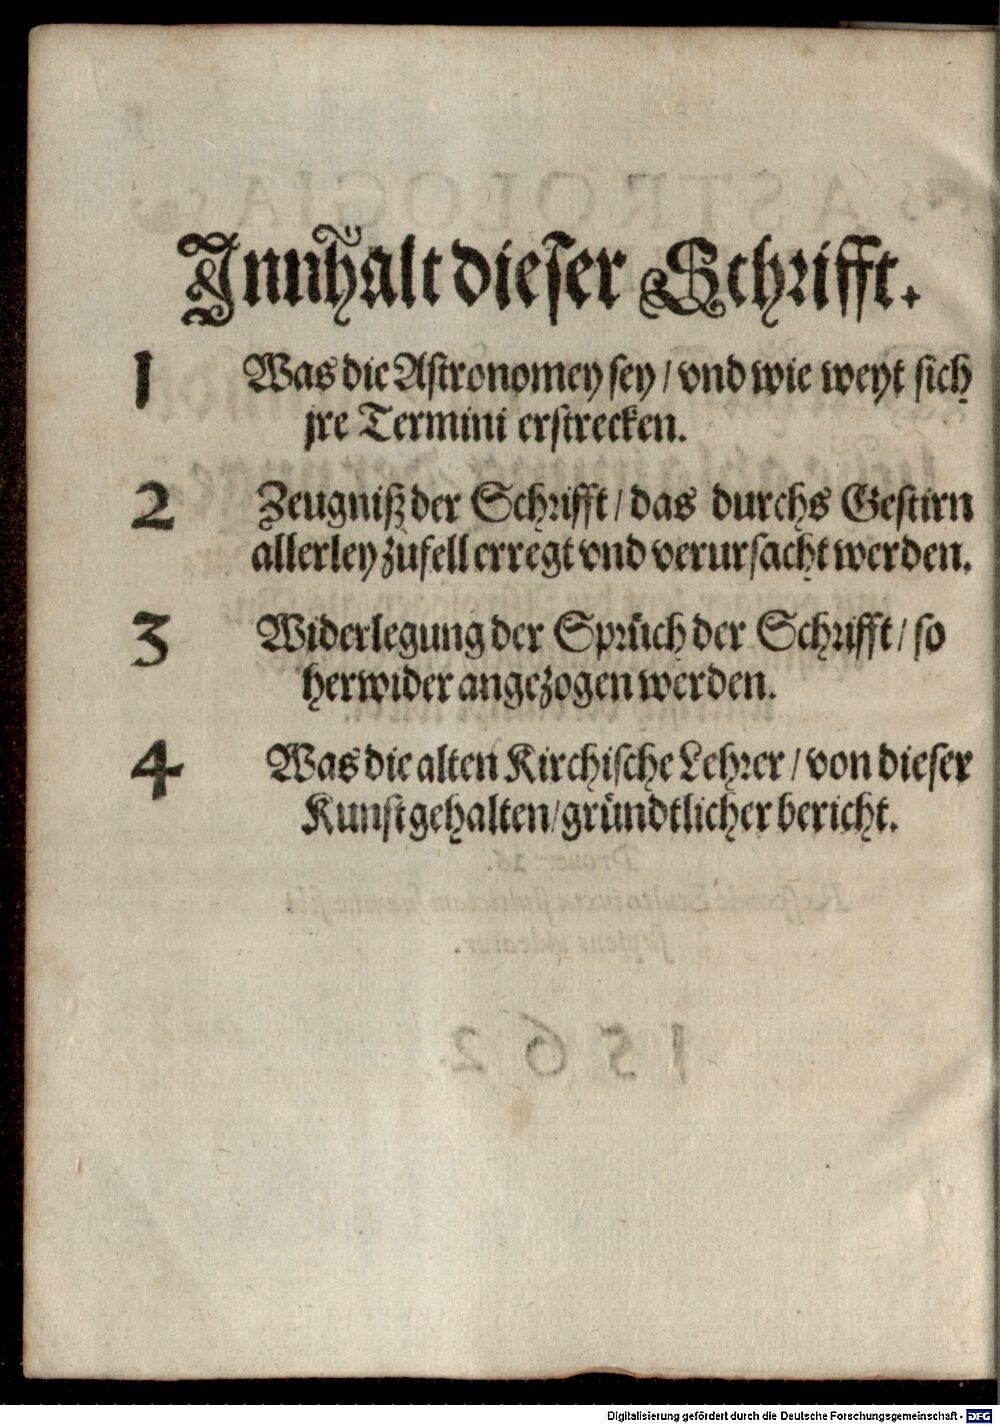 Innhalt dieser Schrifft.
1 Was die Astronomey sey / vnd wie weyt sich
jre Termini erstrecken.
2 Zeugniß der Schrifft / das durchs Gestirn
allerley zufell erregt vnd verursacht werden.
3 Widerlegung der Sprüch der Schrifft / so
herwider angezogen werden.
4 Was die alten Kirchische Lehrer / von dieser
Kunst gehalten / gründtlicher bericht.
1562
Digitalisierung gefördert durch die Deutsche Forschungsgemeinschaft - DFG